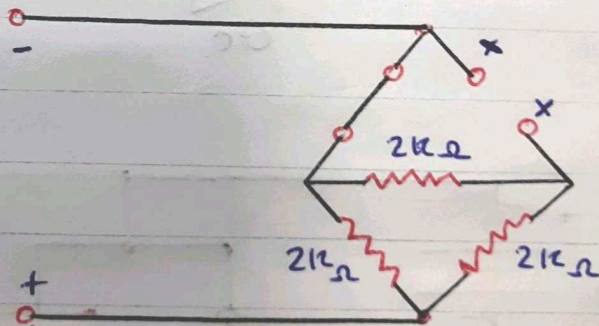 -
x
x
2KΩ
2KΩ
2KΩ
+